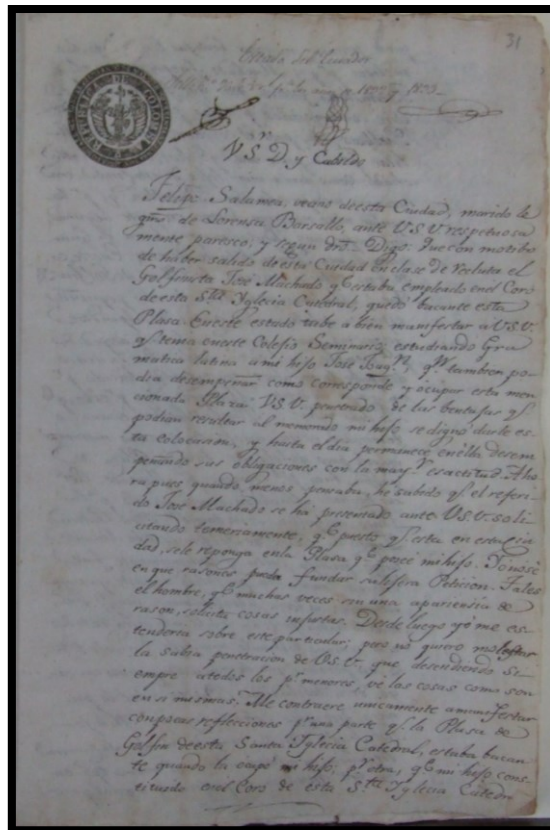 31
Estado del Ecuador
REPUBLICA DE COLOMBIA
V. S. D. y Cabildo
Felipe Salamea, vecino de esta Ciudad, marido le
gmo. de Lorensa Barsallo, ante V.S.V. respetuosa
mente paresco, y segun dro. Digo: Que con motibo
de haber salido de esta Ciudad en clase de recluta el
Golfinsta José Machado q. estaba empleado en el Coro
de esta Sta. Yglecia Catedral, quedó bacante esta
Plasa. En este estado tube a bien manifestar a V.S.V.
q. tenia en este Colesio Seminario, estudiando Gra
matica latina a mi hijo José Joaqn., qn. tambien po
dia desempeñar como corresponde y ocupar esta men
cionada Plaza. V.S.V. penetrado de las bentajas q.
podian resultar al mencionado mi hijo se dignó darle es
ta colocasion, y hasta el dia permanece en ella desem
peñando sus obligaciones con la mayr. esactitud. Aho
ra pues quando menos pensaba, he sabido q. el referi
do José Machado se ha presentado ante V.S.V. soli
citando temeriamente, qe. presto q. esta en esta Ciu
dad, se le reponga en la Plasa qe. poceé mi hijo. Yo no sé
en que rasones pueda fundar su Peticion. Tal es
el hombre, qe. muchas veces con una apariensia de
rason, solicita cosas injustas. Desde luego yo me es
tenderia sobre este particular; pero no quiero molestar
la sabia penetracion de V.S.V. que desendiendo si-
empre a todos los pr. menores, vé las cosas como son
en si mismas. Me contraeré unicamente a manifestar
con pocas reflecciones pr. una parte q. la Plasa de
Golfin de esta Santa Yglecia Catedral, estaba bacan
te quando la ocupó mi hijo; pr. otra, qe. mi hijo cons
tituido en el Coro de esta Sta. Yglecia Catedr